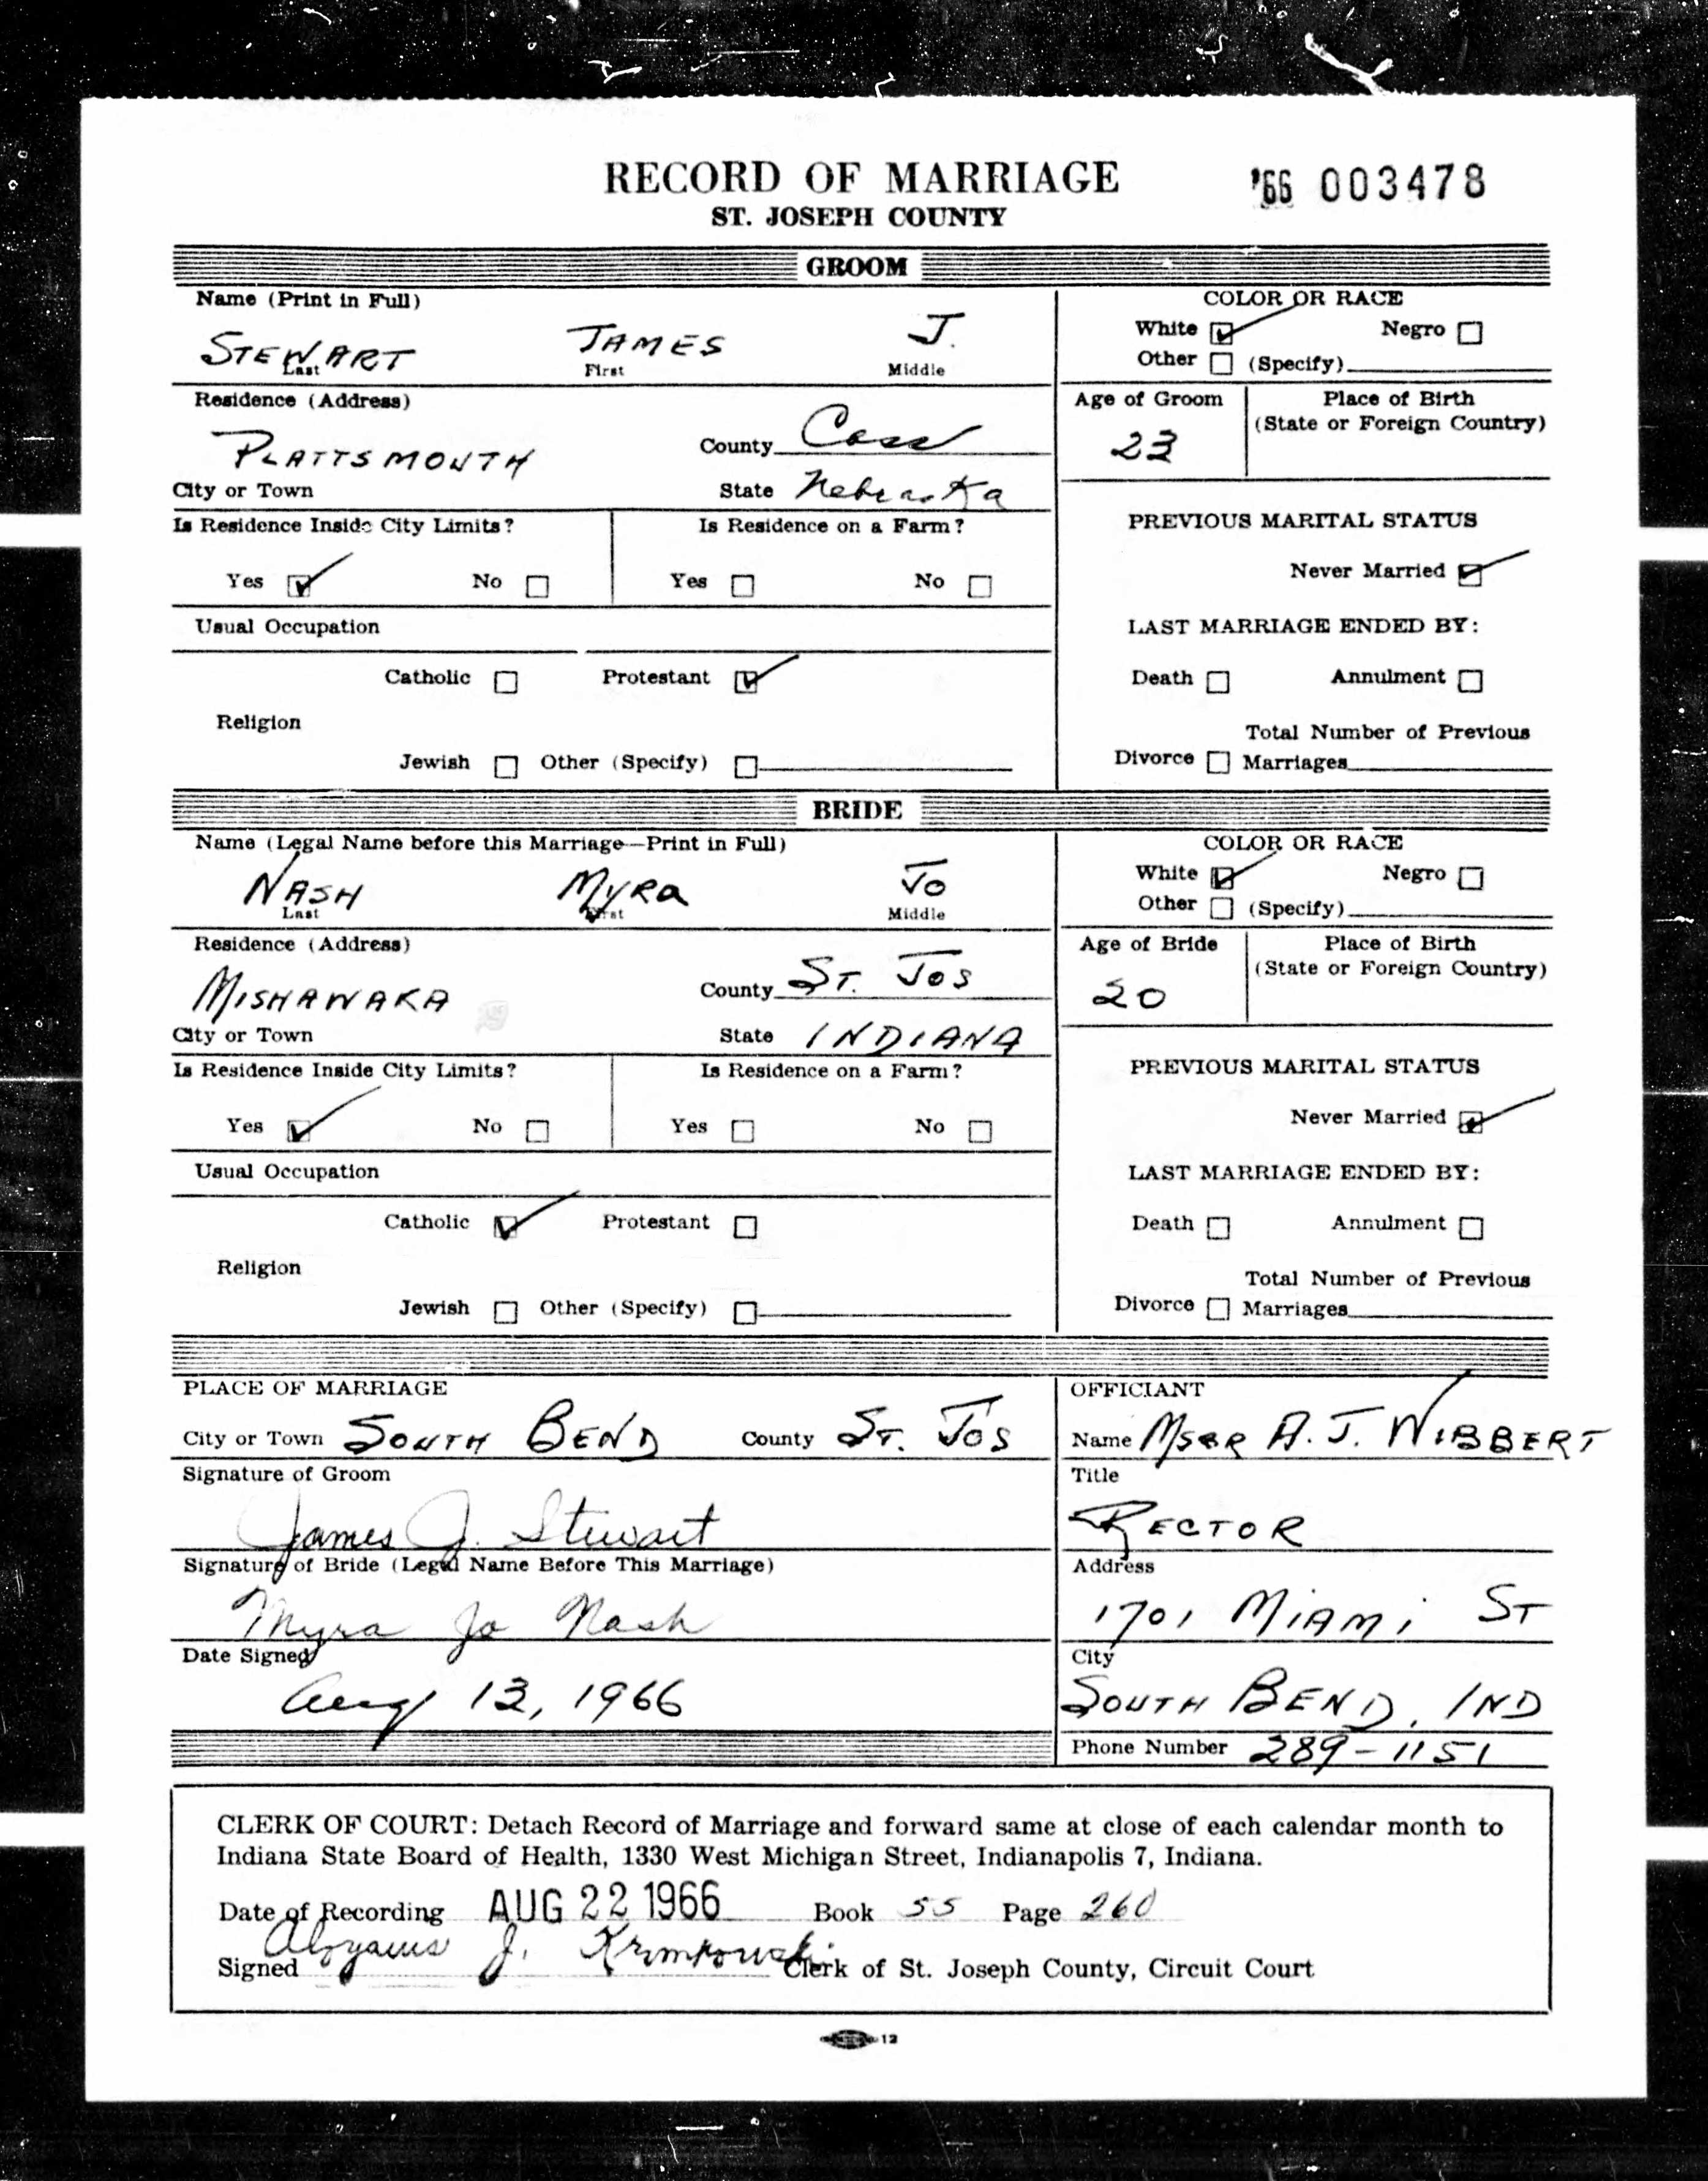 RECORD OF MARRIAGE
'66 003478
ST. JOSEPH COUNTY
GROOM
Name (Print in Full)
STEWART JAMES J.
Last First Middle
COLOR OR RACE
White Negro
Other (Specify)
Residence (Address)
PLATTSMOUTH
County Cass
City or Town
State Nebraska
Age of Groom
23
Place of Birth
(State or Foreign Country)
Is Residence Inside City Limits?
Yes No
Is Residence on a Farm?
Yes No
PREVIOUS MARITAL STATUS
Never Married
Usual Occupation
LAST MARRIAGE ENDED BY:
Catholic Protestant
Religion
Jewish Other (Specify)
Death Annulment
Total Number of Previous
Divorce Marriages
BRIDE
Name (Legal Name before this Marriage—Print in Full)
NASH MYRA JO
Last First Middle
COLOR OR RACE
White Negro
Other (Specify)
Residence (Address)
MISHAWAKA
County ST. JOS
City or Town
State INDIANA
Age of Bride
20
Place of Birth
(State or Foreign Country)
Is Residence Inside City Limits?
Yes No
Is Residence on a Farm?
Yes No
PREVIOUS MARITAL STATUS
Never Married
Usual Occupation
LAST MARRIAGE ENDED BY:
Catholic Protestant
Religion
Jewish Other (Specify)
Death Annulment
Total Number of Previous
Divorce Marriages
PLACE OF MARRIAGE
City or Town SOUTH BEND County ST. JOS
Signature of Groom
James J. Stewart
Signature of Bride (Legal Name Before This Marriage)
Myra Jo Nash
Date Signed
Aug 13, 1966
OFFICIANT
Name MSGR A. J. WIBBERT
Title
RECTOR
Address
1701 MIAMI ST
City
SOUTH BEND, IND
Phone Number 289-1151
CLERK OF COURT: Detach Record of Marriage and forward same at close of each calendar month to
Indiana State Board of Health, 1330 West Michigan Street, Indianapolis 7, Indiana.
Date of Recording AUG 22 1966 Book 55 Page 260
Signed Aloysius J. Kromkowski Clerk of St. Joseph County, Circuit Court
12